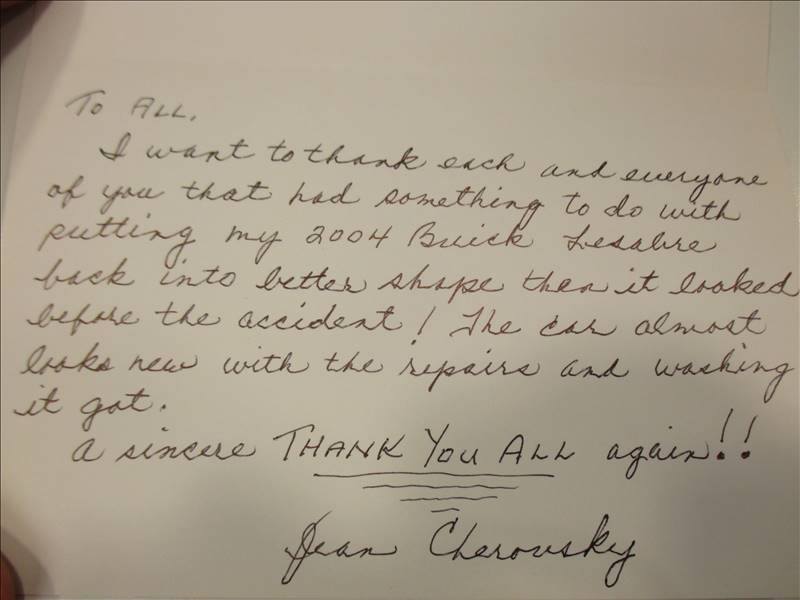 To ALL.
I want to thank each and everyone
of you that had something to do with
putting my 2004 Buick Lesabre
back into better shape then it looked
before the accident! The car almost
looks new with the repairs and washing
it got.
A sincere THANK YOU ALL again!!
Jean Cherovsky